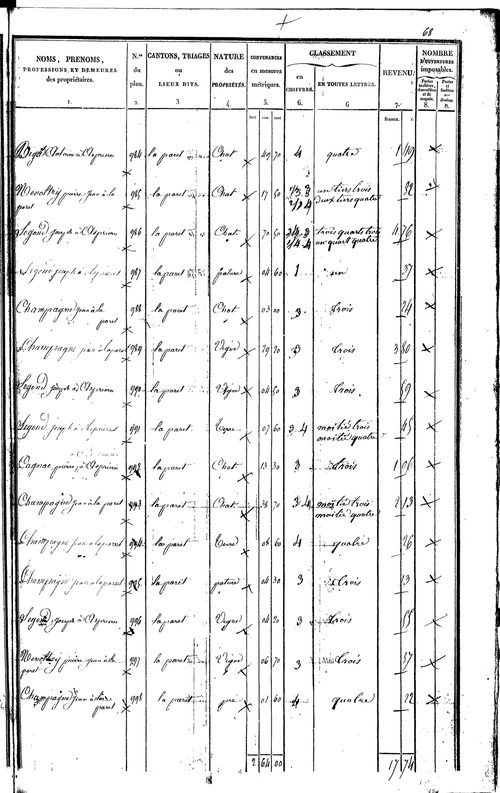 68
NOMS, PRENOMS, PROFESSIONS, ET DEMEURES des propriétaires. 1.
N.os du plan. 2.
CANTONS, TRIAGES ou LIEUX DITS. 3
NATURE des PROPRIÉTÉS. 4.
CONTENANCES en mesures métriques. 5.
CLASSEMENT
en CHIFFRES. 6.
EN TOUTES LETTRES. 6
REVENU. 7.
NOMBRE D'OUVERTURES imposables.
8. 8.
francs. c
Antoine à 984 la paret Chat 49 70 4 quatre 1 49
pierre Jean à la paret 985 la paret Chat 17 50 1/3 3 2/3 4 un tiers trois deux tiers quatre 82
Segond Joseph à 986 la paret Chat 70 50 3/4 3 1/4 4 trois quarts trois un quart quatre 4 76
Segond Joseph à 987 la paret pature 04 60 1 un 37
Champagne Jean à la paret 988 la paret Chat 03 00 3 trois 24
Champagne Jean à la paret 989 la paret Vigne 29 20 3 trois 3 80
Segond Joseph à 990 la paret Vigne 04 50 3 trois 59
Segond Joseph à 991 la paret Terre 07 60 3 4 moitié trois moitié quatre 45
Cagnac pierre à 992 la paret Chat 13 30 3 trois 1 06
Champagne Jean à la paret 993 la paret Chat 38 70 3 4 moitié trois moitié quatre 2 13
Champagne Jean à la paret 994 la paret Terre 08 60 4 quatre 26
Champagne Jean à la paret 995 la paret pature 04 30 3 trois 13
Segond Joseph à 996 la paret Vigne 04 20 3 trois 55
pierre Jean à la paret 997 la paret Vigne 06 70 3 trois 87
Champagne Jean à la paret 998 la paret pré 01 60 4 quatre 22
2 64 00 17 74